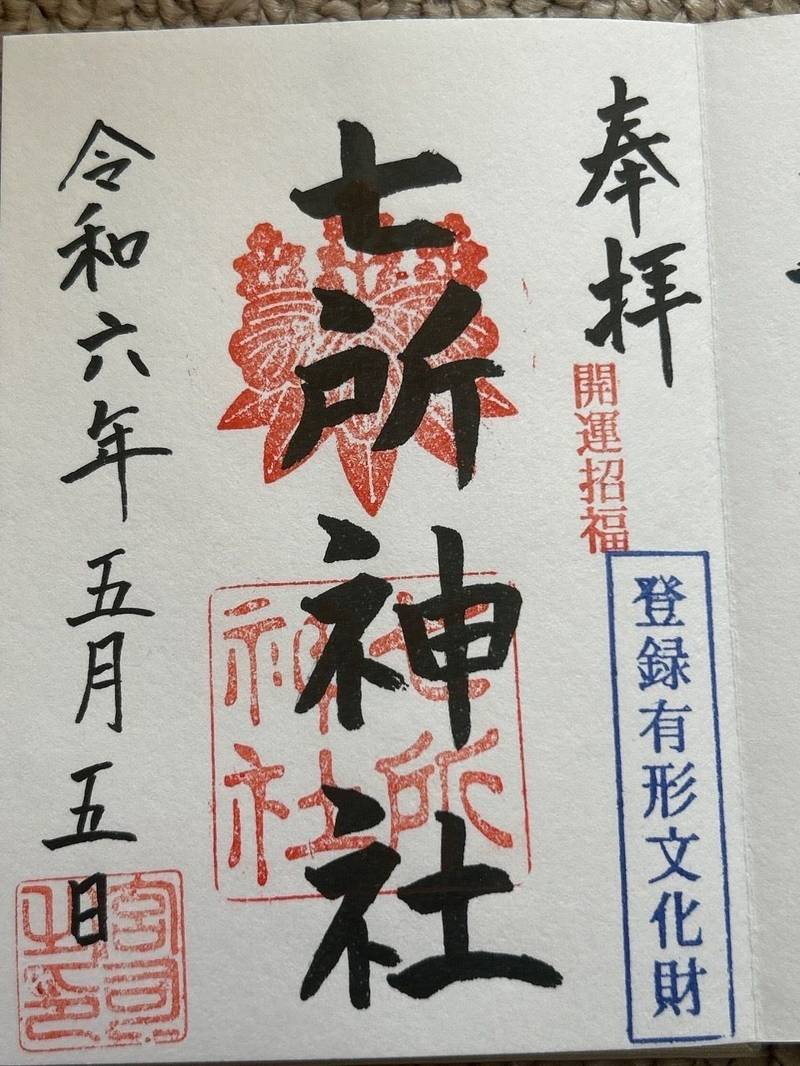 奉拝
開運招福
登録有形文化財
七所神社
七所神社
令和六年五月五日
宮司之印